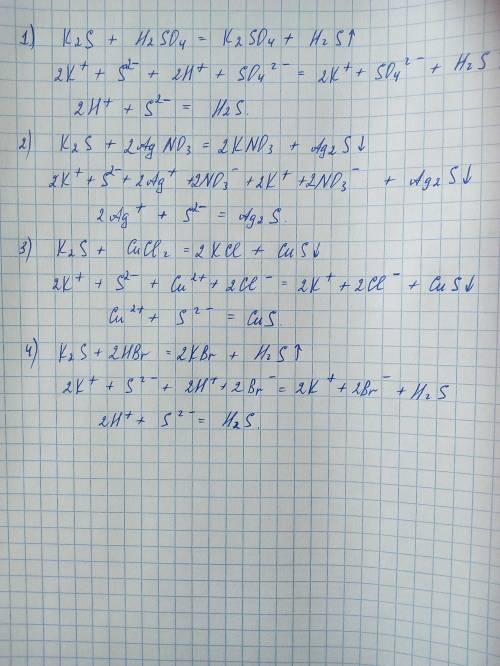 1) K2S + H2SO4 = K2SO4 + H2S↑
2K⁺ + S²⁻ + 2H⁺ + SO4²⁻ = 2K⁺ + SO4²⁻ + H2S
2H⁺ + S²⁻ = H2S.
2) K2S + 2AgNO3 = 2KNO3 + Ag2S↓
2K⁺ + S²⁻ + 2Ag⁺ + 2NO3⁻ + 2K⁺ + 2NO3⁻ + Ag2S↓
2Ag⁺ + S²⁻ = Ag2S.
3) K2S + CuCl2 = 2KCl + CuS↓
2K⁺ + S²⁻ + Cu²⁺ + 2Cl⁻ = 2K⁺ + 2Cl⁻ + CuS↓
Cu²⁺ + S²⁻ = CuS.
4) K2S + 2HBr = 2KBr + H2S↑
2K⁺ + S²⁻ + 2H⁺ + 2Br⁻ = 2K⁺ + 2Br⁻ + H2S
2H⁺ + S²⁻ = H2S.